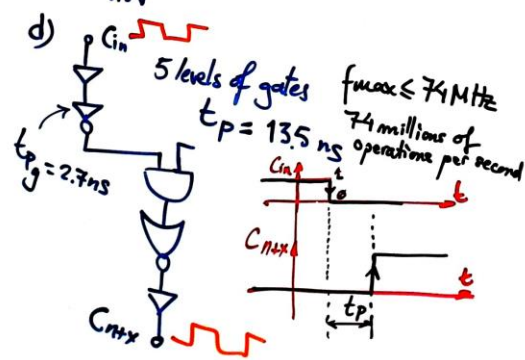 d)
Cin
5 levels of gates
tp = 13.5 ns
fmax ≤ 74 MHz
74 millions of
operations per second
tpg = 2.7 ns
Cin
1
0
t
Cn+x
t
tp
Cn+x